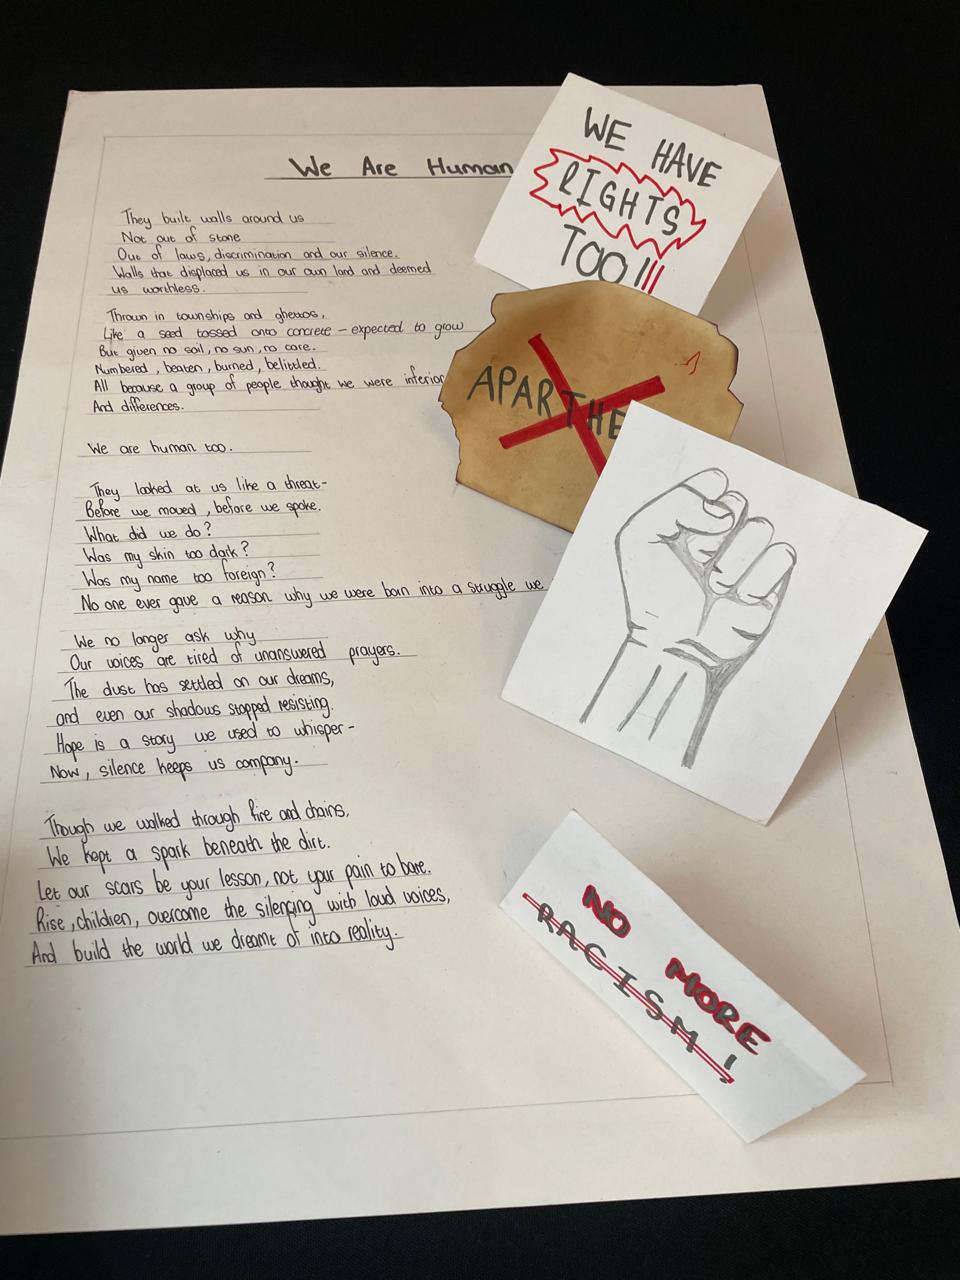 We Are Human
They built walls around us
Not out of stone
Out of laws, discrimination and our silence.
Walls that displaced us in our own land and deemed
us worthless.
Thrown in townships and ghettos,
Like a seed tossed onto concrete - expected to grow
But given no soil, no sun, no care.
Numbered, beaten, burned, belittled.
All because a group of people thought we were inferior
And differences.
We are human too.
They looked at us like a threat-
Before we moved, before we spoke.
What did we do?
Was my skin too dark?
Was my name too foreign?
No one ever gave a reason why we were born into a struggle we
We no longer ask why
Our voices are tired of unanswered prayers.
The dust has settled on our dreams,
and even our shadows stopped resisting.
Hope is a story we used to whisper-
Now, silence keeps us company.
Though we walked through fire and chains,
We kept a spark beneath the dirt.
Let our scars be your lesson, not your pain to bare.
Rise, children, overcome the silencing with loud voices,
And build the world we dreamt of into reality.
WE HAVE
RIGHTS
TOO!!!
APARTHE
NO MORE
RACISM!